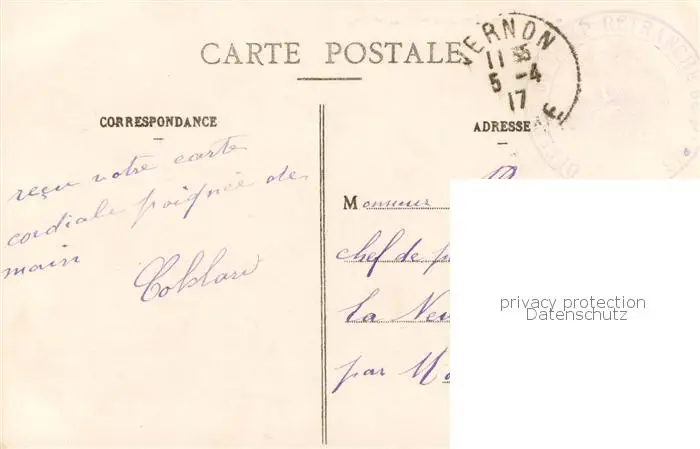 CARTE POSTALE
VERNON
11 35
5 -4
17
RETRANCHÉ
CORRESPONDANCE
ADRESSE
reçu votre carte
cordiale poignée de
main
Monsieur
chef de
la
par
privacy protection
Datenschutz